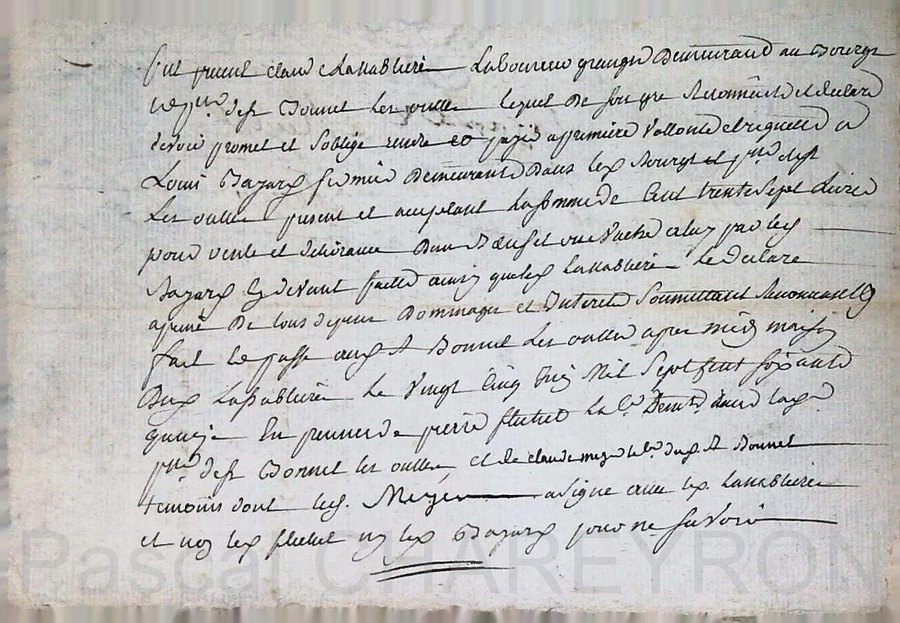 fut present claude Lasablière Laboureur granger demeurant au Bourg
et psse de St Bonnet les oulles lequel de son gré Reconnoit et declare
devoir promet et soblige rendre et payer a premiere vollonté et requette a
Louis Bayard fermier demeurant dans led Bourg et psse de St
Les oulles present et acceptant La somme de Cent trente sept Livres
pour vente et delivrance dun Boeuf et une vache a luy par led
Bayard cy devant faitte ainsy que led Lasablière Le declare
apeine de tous depens Dommages et Interets soumettant Renonceant &
fait et passé aud St Bonnet Les oulles apres midy maison
Dud Lasablière Le vingt cinq Mil sept cent soixante
En presence de pierre la
psse de St Bonnet les oulles et de claude dud St Bonnet
temoins dont led. a signé avec led. Lasablière
et non led ny led Bayard pour ne savoir
Pascal CHAREYRON